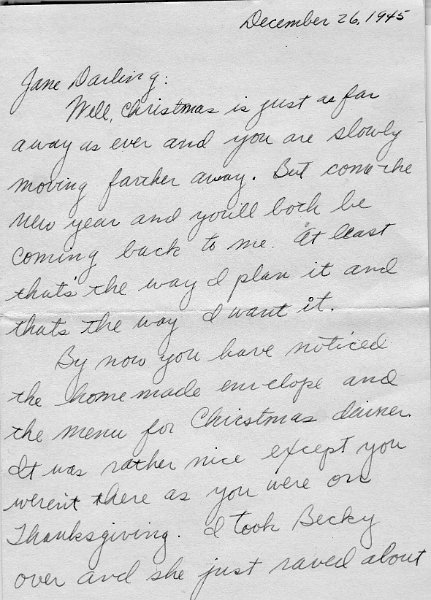 December 26, 1945
Jane Darling:
Well, Christmas is just as far
away as ever and you are slowly
moving farther away. But come the
New year and you'll both be
coming back to me. At least
that's the way I plan it and
thats the way I want it.
By now you have noticed
the homemade envelope and
the menu for Christmas dinner.
It was rather nice except you
weren't there as you were on
Thanksgiving. I took Becky
over and she just raved about